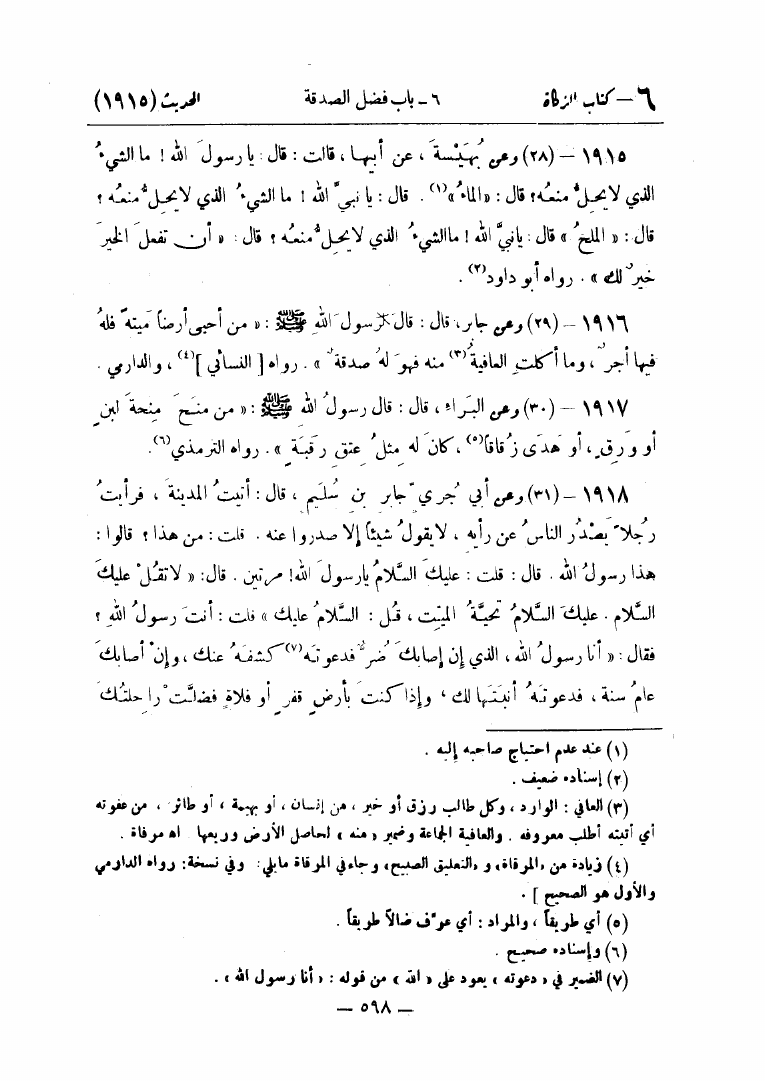 ٦ – كتاب الزكاة ٦ - باب فضل الصدقة الحديث (١٩١٥)
١٩١٥ – (٢٨) وعن بُهَيْسةَ ، عن أبيها ، قالت : قال : يا رسولَ الله ! ما الشيءُ
الذي لا يحِلُّ منعُه؟ قال : «الماءُ»(١) . قال : يا نبيَّ الله ! ما الشيءُ الذي لا يحِلُّ منعُه ؟
قال : « الملحُ » قال : يانبيَّ الله ! ماالشيءُ الذي لايحلُّ منعُه ؟ قال : « أن تفعلَ الخيرَ
خيرٌ لك » . رواه أبو داود(٢) .
١٩١٦ – (٢٩) وعن جابر، قال : قال رسولُ اللهِ ﷺ : « من أحيى أرضاً مَيتةً فلهُ
فيها أجرٌ ، وما أكلتِ العافيةُ(٣) منه فهوَ لهُ صدقةٌ » . رواه [ النسائي ](٤) ، والدارمي .
١٩١٧ – (٣٠) وعن البَراء ، قال : قال رسولُ الله ﷺ : « من منَحَ مِنحةَ لبنٍ
أو وَرِقٍ ، أو هَدَى زُقاقاً(٥) ، كانَ له مِثلُ عِتقِ رقَبَةٍ » . رواه الترمذي(٦).
١٩١٨ – (٣١) وعن أبي جُرَيّ جابر بن سُلَيم ، قال : أتيتُ المدينةَ ، فرأيتُ
رجُلاً يَصْدُر الناسُ عن رأيِه ، لايقولُ شيئاً إلا صدروا عنه . قلت : من هذا ؟ قالوا :
هذا رسولُ الله . قال : قلت : عليكَ السَّلامُ يارسولَ الله! مرتين . قال : « لاتقُلْ عليكَ
السَّلام . عليكَ السَّلامُ تحيَّةُ الميِّت ، قُل : السَّلامُ عليك » قلت : أنتَ رسولُ اللهِ ؟
فقال : « أنا رسولُ الله ، الذي إن إصابكَ ضُرٌّ فدعوتَه(٧) كشفَهُ عنك ، وإنْ أصابكَ
عامُ سنة ، فدعوتَهُ أنبَتَها لك ، وإذا كنتَ بأرضٍ قفرٍ أو فلاةٍ فضلَّتْ راحلتُكَ
(١) عند عدم احتياج صاحبه إليه .
(٢) إسناده ضعيف .
(٣) العافي : الوارد ، وكل طالب رزق أو خير ، من إنسان ، أو بهيمة ، أو طائر ، من عفوته
أي أتيته أطلب معروفه . والعافية الجماعة وضمير « منه » لحاصل الأرض وريعها اهـ مرقاة .
(٤) زيادة من «المرقاة» و «التعليق الصبيح» وجاء في المرقاة مايلي: وفي نسخة: رواه الدارمي
والأول هو الصحيح ] .
(٥) أي طريقاً ، والمراد : أي عرّف ضالاً طريقاً .
(٦) وإسناده صحيح .
(٧) الضمير في « دعوته » يعود على « الله » من قوله : « أنا رسول الله » .
— ٥٩٨ —